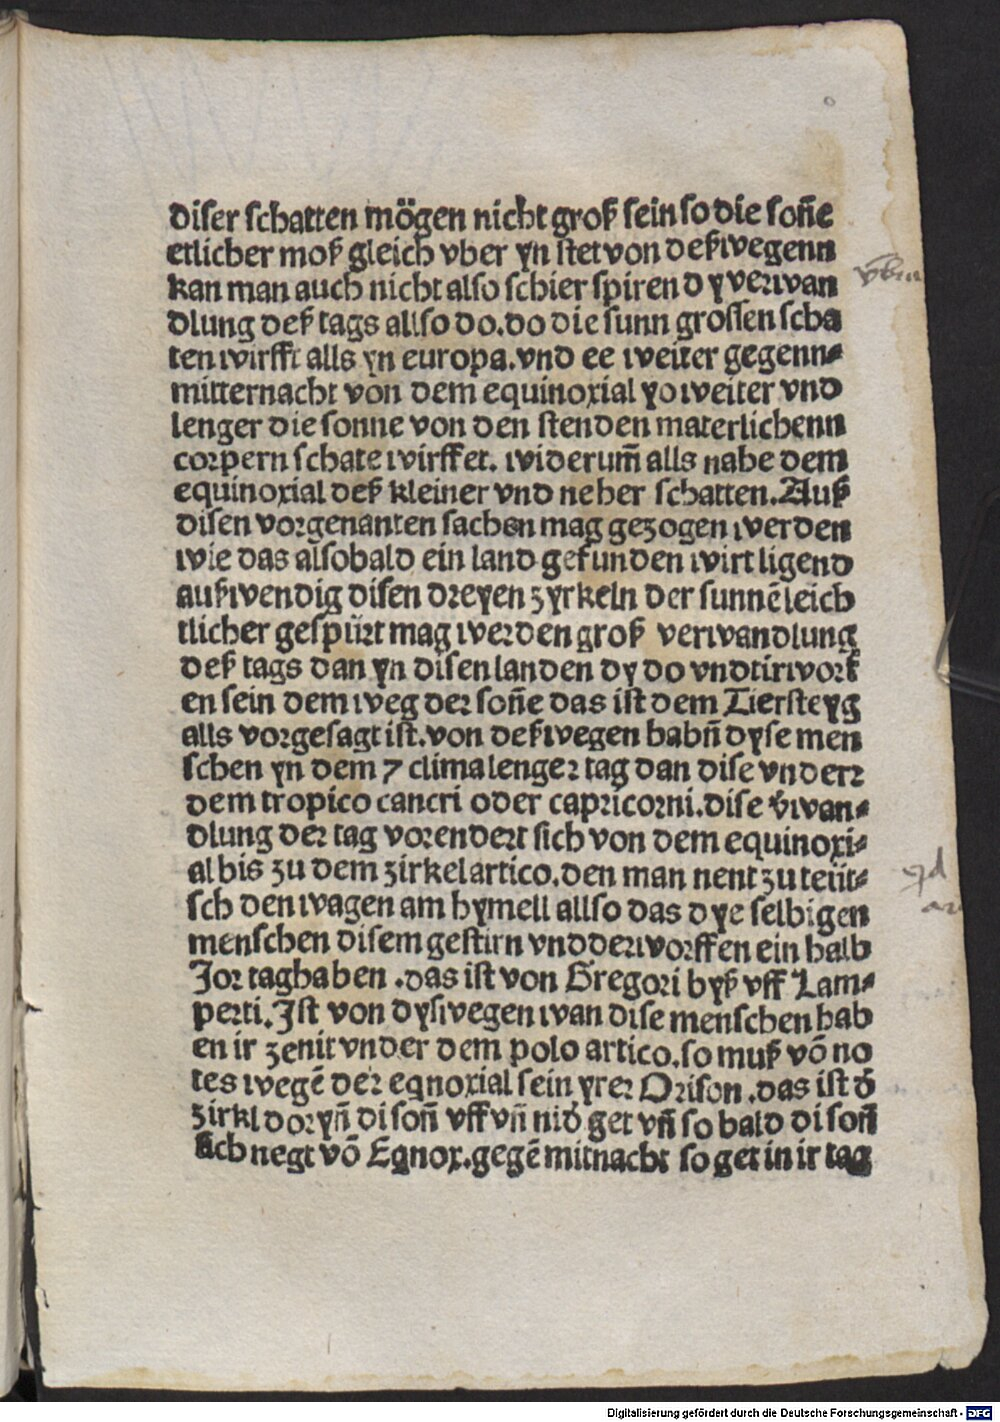 diser schatten mögen nicht groß sein so die soñe
etlicher moß gleich vber yn stet von deßwegenn
kan man auch nicht also schier spiren dy verwan
dlung deß tags allso do. do die sunn grossen scha
ten wirfft alls yn europa. vnd ee weiter gegenn⸗
mitternacht von dem equinoxial yo weiter vnd
lenger die sonne von den stenden materlichenn
corpern schate wirffet. widerum̃ alls nahe dem
equinoxial deß kleiner vnd neher schatten. Auß
disen vorgenanten sachen mag gezogen werden
wie das alsobald ein land gefunden wirt ligend
außwendig disen dreyen zyrkeln der sunnē leich
tlicher gespürt mag werden groß verwandlung
deß tags dan yn disen landen dy do vndtirworf
en sein dem weg der soñe das ist dem Tiersteyg
alls vorgesagt ist. von deßwegen habñ dyse men
schen yn dem 7 clima lenger tag dan dise vnderr
dem tropico cancri oder capricorni. dise v̄wan⸗
dlung der tag vorendert sich von dem equinoxi⸗
al bis zu dem zirkel artico. den man nent zu teüt⸗
sch den wagen am hymell allso das dye selbigen
menschen disem gestirn vndderworffen ein halb
Jor tag haben . das ist von Gregori byß vff Lam⸗
perti. Ist von dyswegen wan dise menschen hab
en ir zenit vnder dem polo artico. so muß vō no
tes wegē der eqnoxial sein yrer Orison . das ist d̄
zirkl dor yñ di soñ vff vñ nid̄ get vñ so bald di soñ
sich negt vō Eqnox. gegē mitnacht so get in ir tag
Digitalisierung gefördert durch die Deutsche Forschungsgemeinschaft - DFG